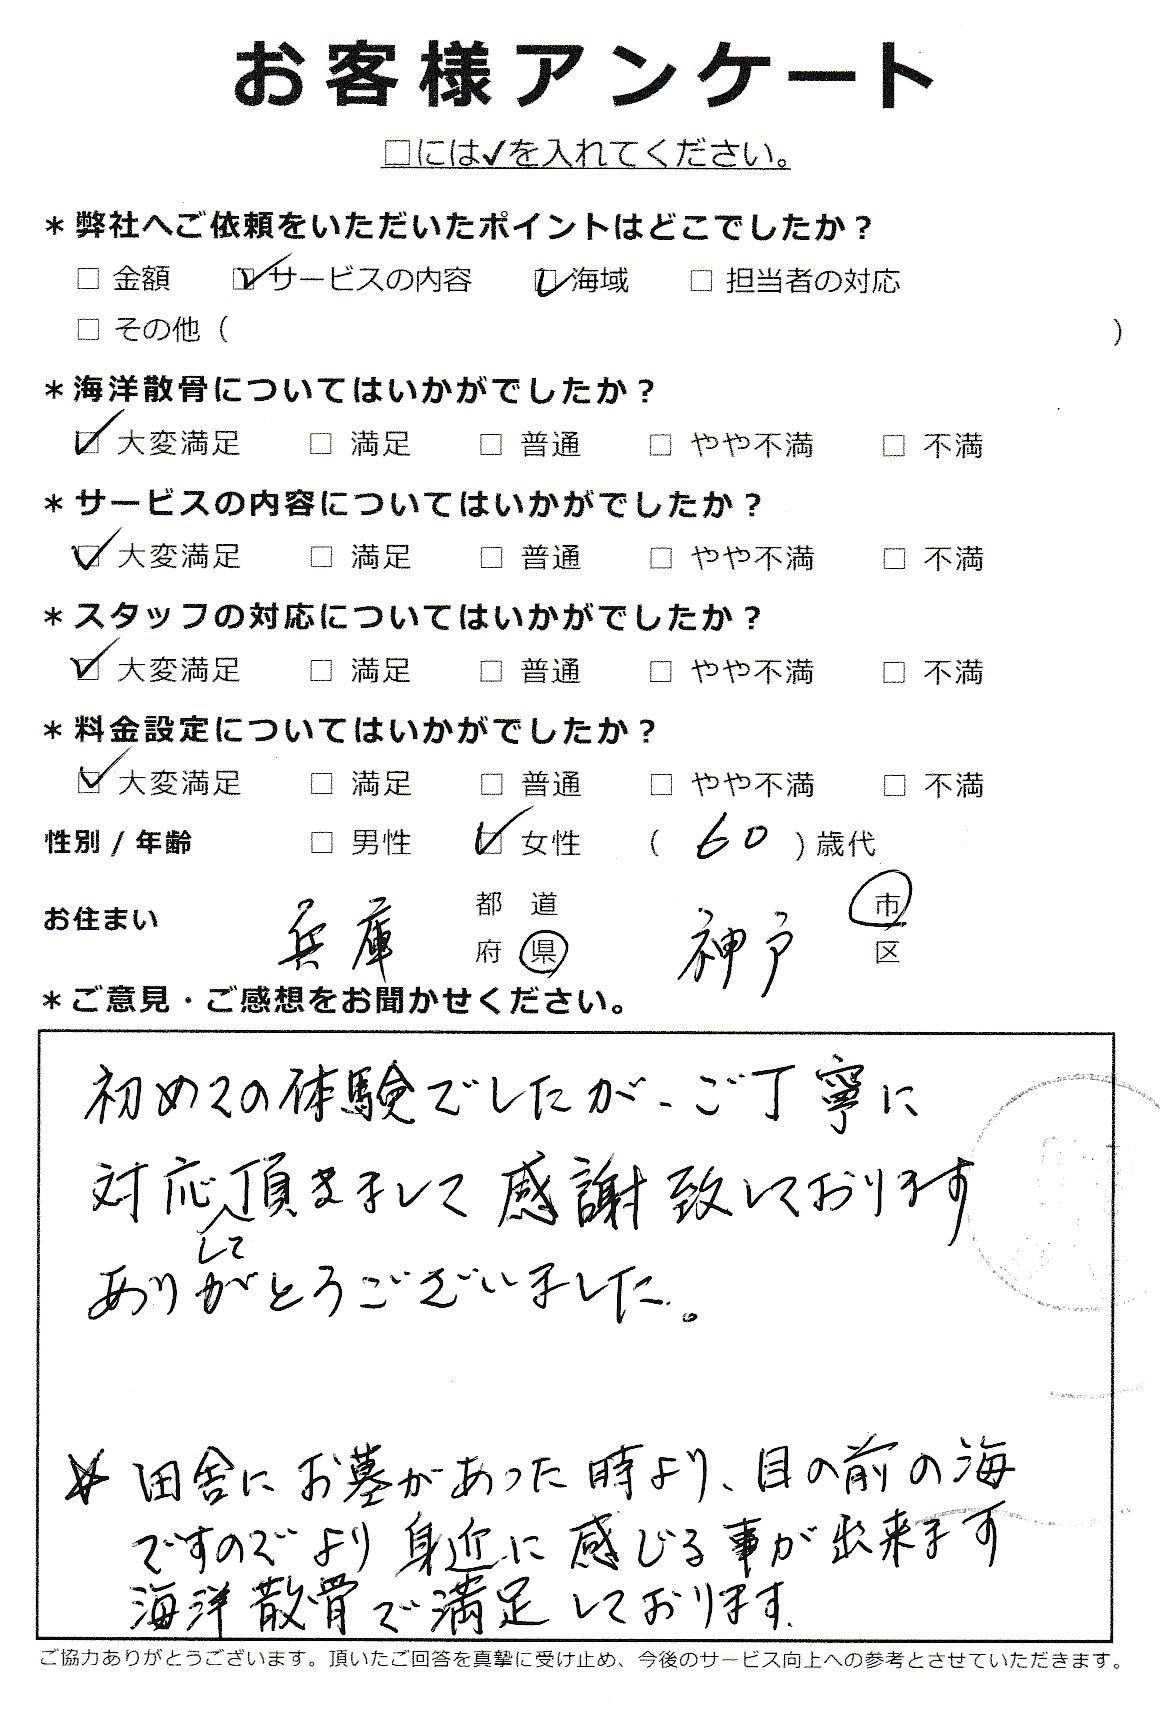 お客様アンケート
□には✓を入れてください。
＊弊社へご依頼をいただいたポイントはどこでしたか？
□ 金額 ☑ サービスの内容 ☑ 海域 □ 担当者の対応
□ その他（ ）
＊海洋散骨についてはいかがでしたか？
☑ 大変満足 □ 満足 □ 普通 □ やや不満 □ 不満
＊サービスの内容についてはいかがでしたか？
☑ 大変満足 □ 満足 □ 普通 □ やや不満 □ 不満
＊スタッフの対応についてはいかがでしたか？
☑ 大変満足 □ 満足 □ 普通 □ やや不満 □ 不満
＊料金設定についてはいかがでしたか？
☑ 大変満足 □ 満足 □ 普通 □ やや不満 □ 不満
性別 / 年齢 □ 男性 ☑ 女性 （ 60 ）歳代
お住まい 兵庫 都 道 府 県 神戸 市 区
＊ご意見・ご感想をお聞かせください。
初めての体験でしたが、ご丁寧に
対応して頂きまして感謝致しております
ありがとうございました。
☆ 田舎にお墓があった時より、目の前の海
ですのでより身近に感じる事が出来ます
海洋散骨で満足しております.
ご協力ありがとうございます。頂いたご回答を真摯に受け止め、今後のサービス向上への参考とさせていただきます。